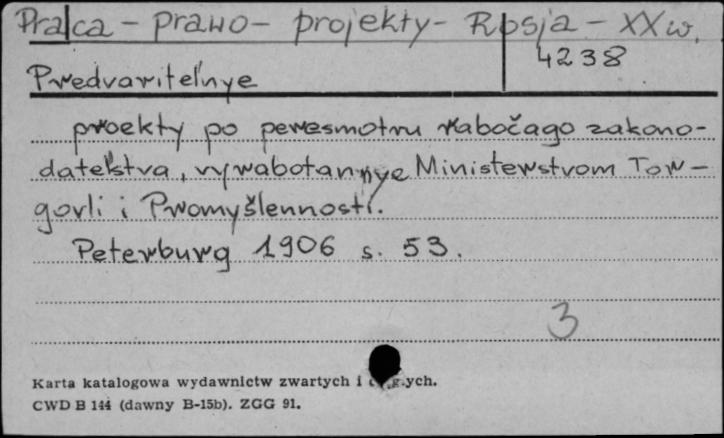 Praca - prawo - projekty - Rosja - XX w.
4238
Predvaritel'nye
proekty po peresmotru rabočago zakono-
datel'stva, vyrabotannye Ministerstvom Tor-
govli i Promyšlennosti.
Peterburg 1906 s. 53.
3
Karta katalogowa wydawnictw zwartych i
CWD B 144 (dawny B-15b). ZGG 91.